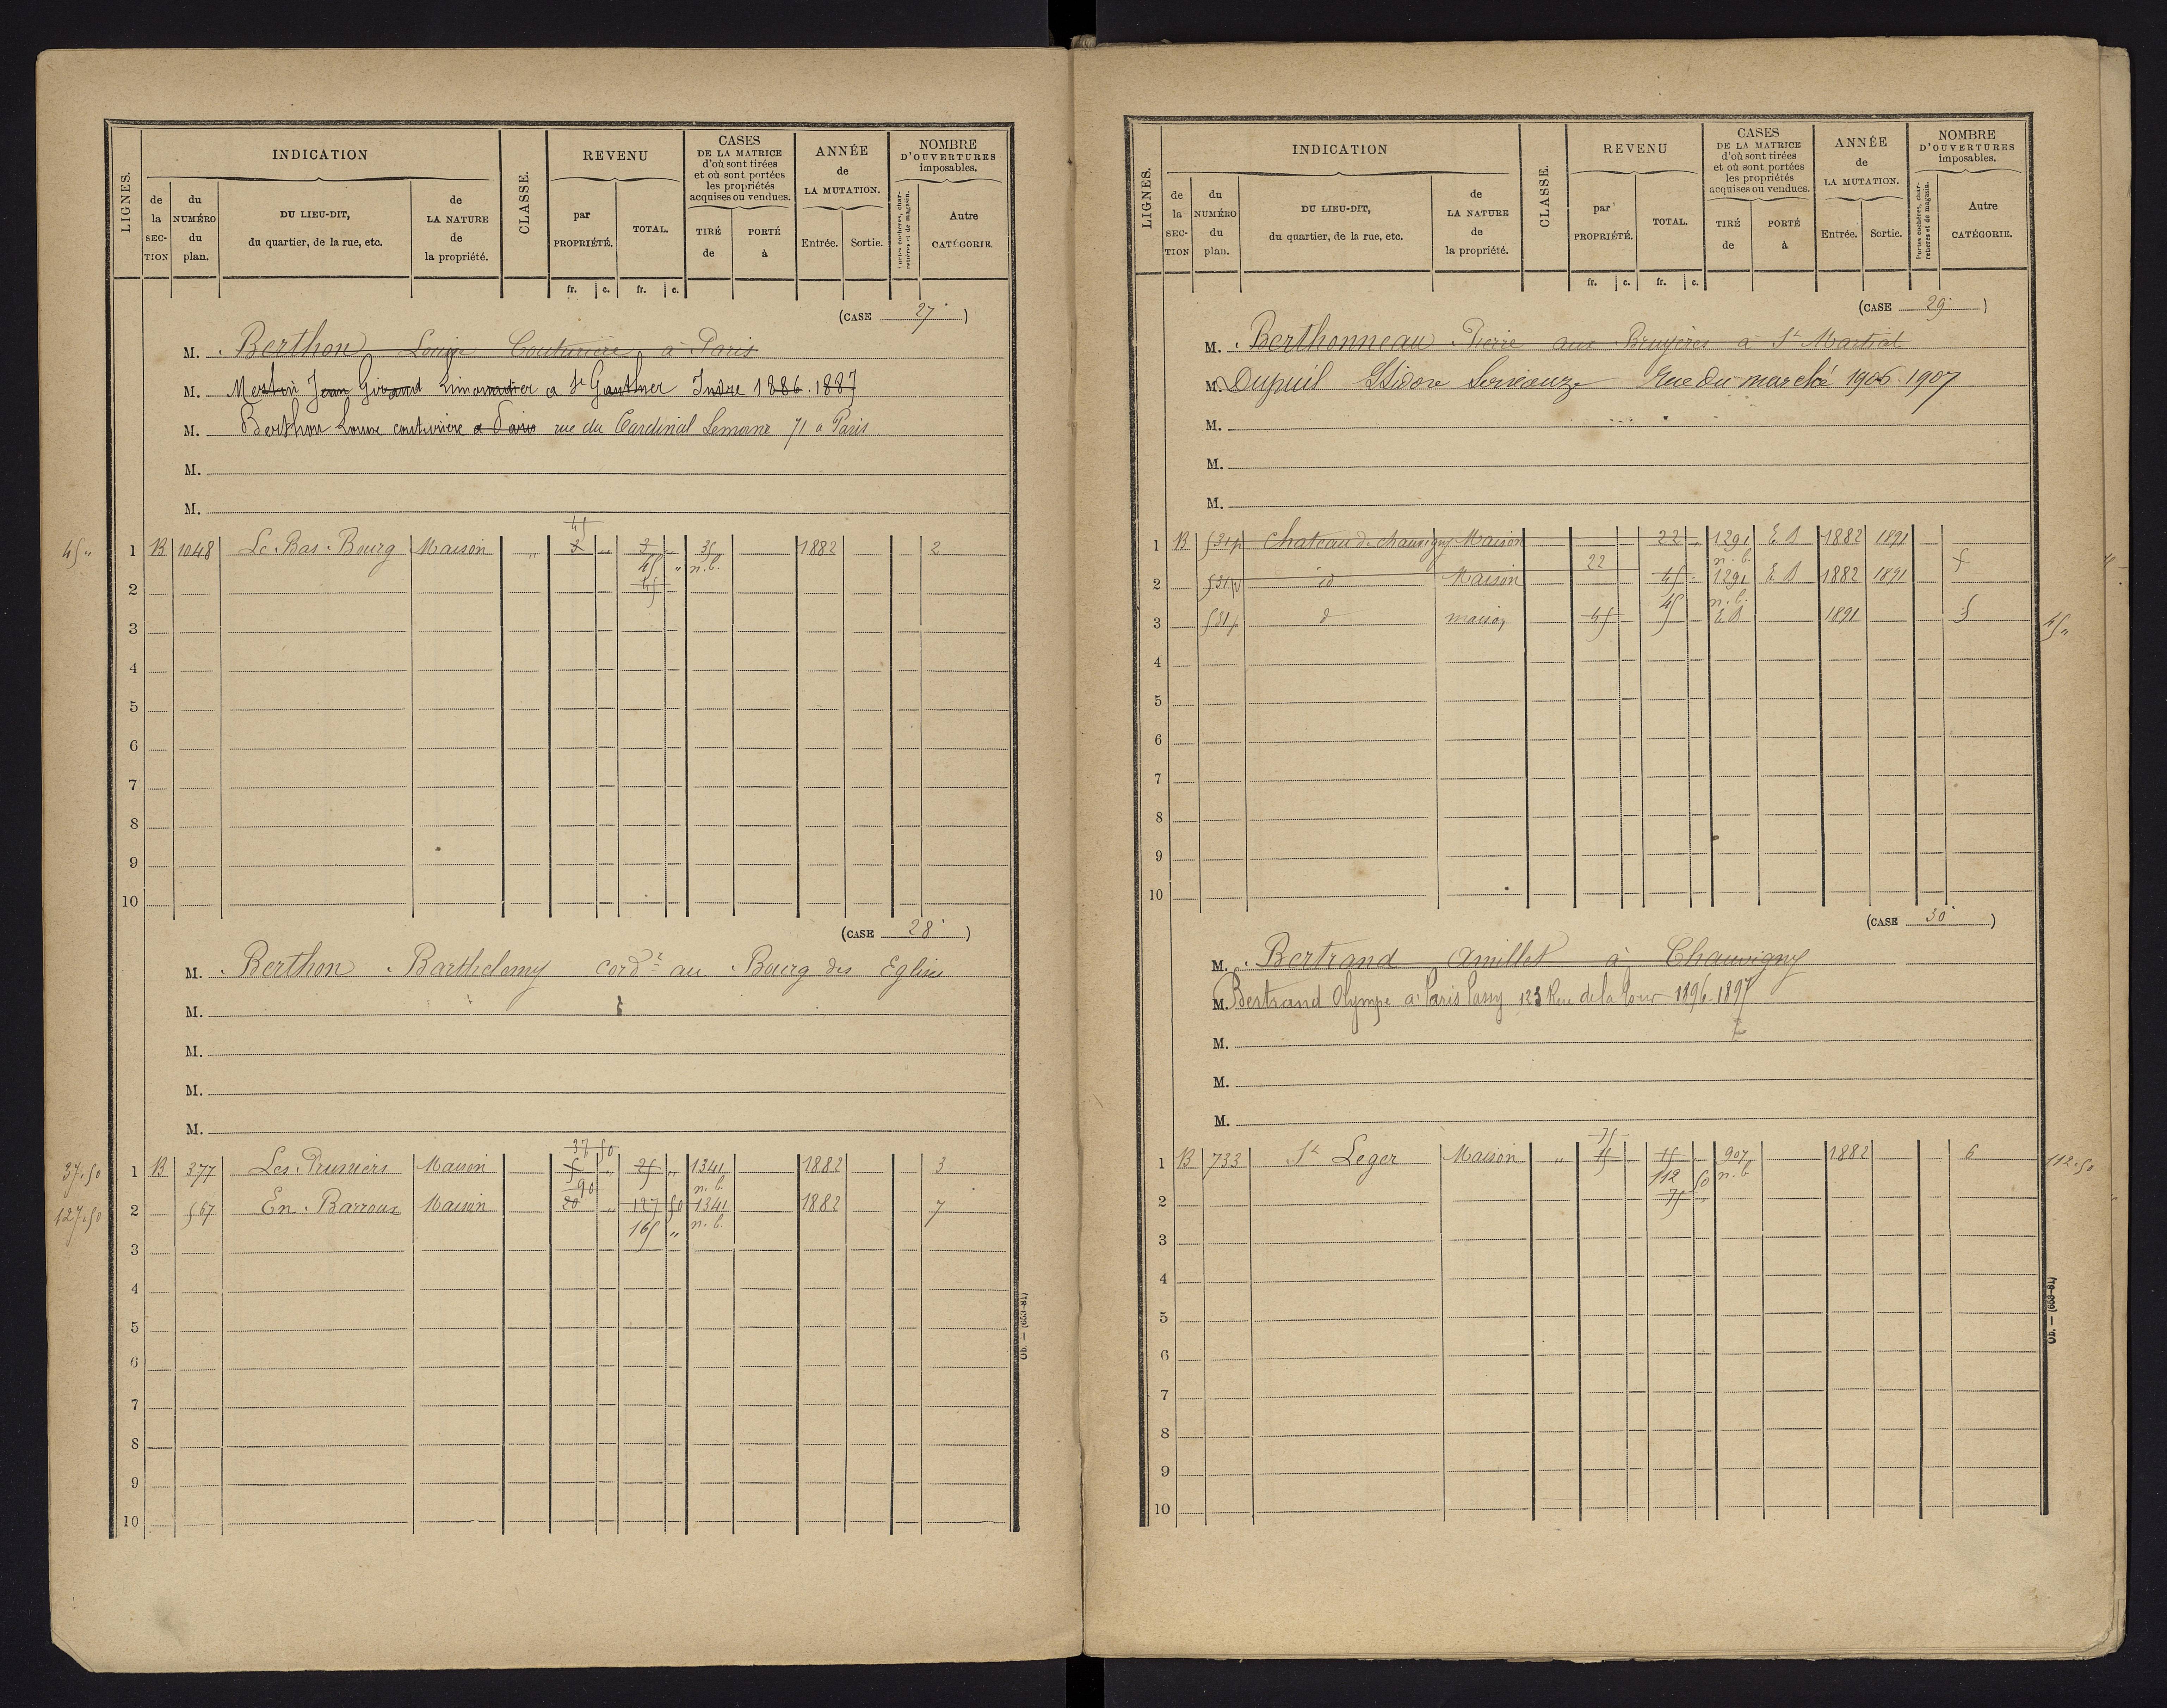 LIGNES.
INDICATION
de la SECTION
du NUMÉRO du plan.
DU LIEU-DIT, du quartier, de la rue, etc.
de LA NATURE de la propriété.
CLASSE.
REVENU
par PROPRIÉTÉ.
TOTAL.
CASES DE LA MATRICE d'où sont tirées et où sont portées les propriétés acquises ou vendues.
TIRÉ de
PORTÉ à
ANNÉE de LA MUTATION.
Entrée.
Sortie.
NOMBRE D'OUVERTURES imposables.
Portes cochères, charretières et de magasin.
Autre CATÉGORIE.
fr. c. fr. c.
(CASE 27)
M. Berthon Louise Couturière à Paris
M. Mestrin Jean Giraud Limonadier a St Gaultier Indre 1886.1887
M. Berthon Louise couturiere a Paris rue du Cardinal Lemoine 71 a Paris.
M.
M.
45
45 " 1 B 1048 Le Bas Bourg Maison " 3 " 3 " 35 1882 2
45 " n.b.
2 45
3
4
5
6
7
8
9
10
(CASE 28)
M. Berthon Barthelemy cordr au Bourg des Eglises
M.
M.
M.
M.
37 50
37.50 1 B 377 Les Pruniers Maison 5 " 25 " 1341 1882 3
90 n.b.
127.50 2 567 En Barroux Maison 20 " 127 50 1341 1882 7
165 " n.b.
3
4
5
6
7
8
9
10
Ob. — (653-81)
LIGNES.
INDICATION
de la SECTION
du NUMÉRO du plan.
DU LIEU-DIT, du quartier, de la rue, etc.
de LA NATURE de la propriété.
CLASSE.
REVENU
par PROPRIÉTÉ.
TOTAL.
CASES DE LA MATRICE d'où sont tirées et où sont portées les propriétés acquises ou vendues.
TIRÉ de
PORTÉ à
ANNÉE de LA MUTATION.
Entrée.
Sortie.
NOMBRE D'OUVERTURES imposables.
Portes cochères, charretières et de magasin.
Autre CATÉGORIE.
fr. c. fr. c.
(CASE 29)
M. Berthonneau Pierre aux Bruyères à St Martial
M. Dupuil Isidore Rue du marché 1906.1907
M.
M.
M.
1 B 531p Chateau de chauvigny Maison 22 " 1291 E.B 1882 1891
22 n.b.
2 531p id Maison 45 1291 E.B 1882 1891 5
45 n.b.
3 531p d maison 45 E.B 1891 5 45 "
4
5
6
7
8
9
10
(CASE 30)
M. Bertrand Amillet à Chauvigny
M. Bertrand Olympe a Paris Passy 123 Rue de la Tour 1896-1897
M.
M.
M.
75
1 B 733 St Leger Maison " 907 1882 6 112.50
112 50 n.b
2 75
3
4
5
6
7
8
9
10